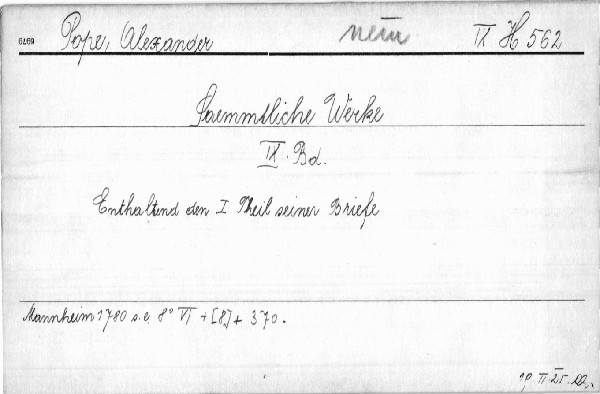 6769 Pope, Alexander neu IX H 562
Saemmtliche Werke
IX. Bd.
Enthaltend den I Theil seiner Briefe
Mannheim 1780 s.e. 8° VI + [8] + 370.